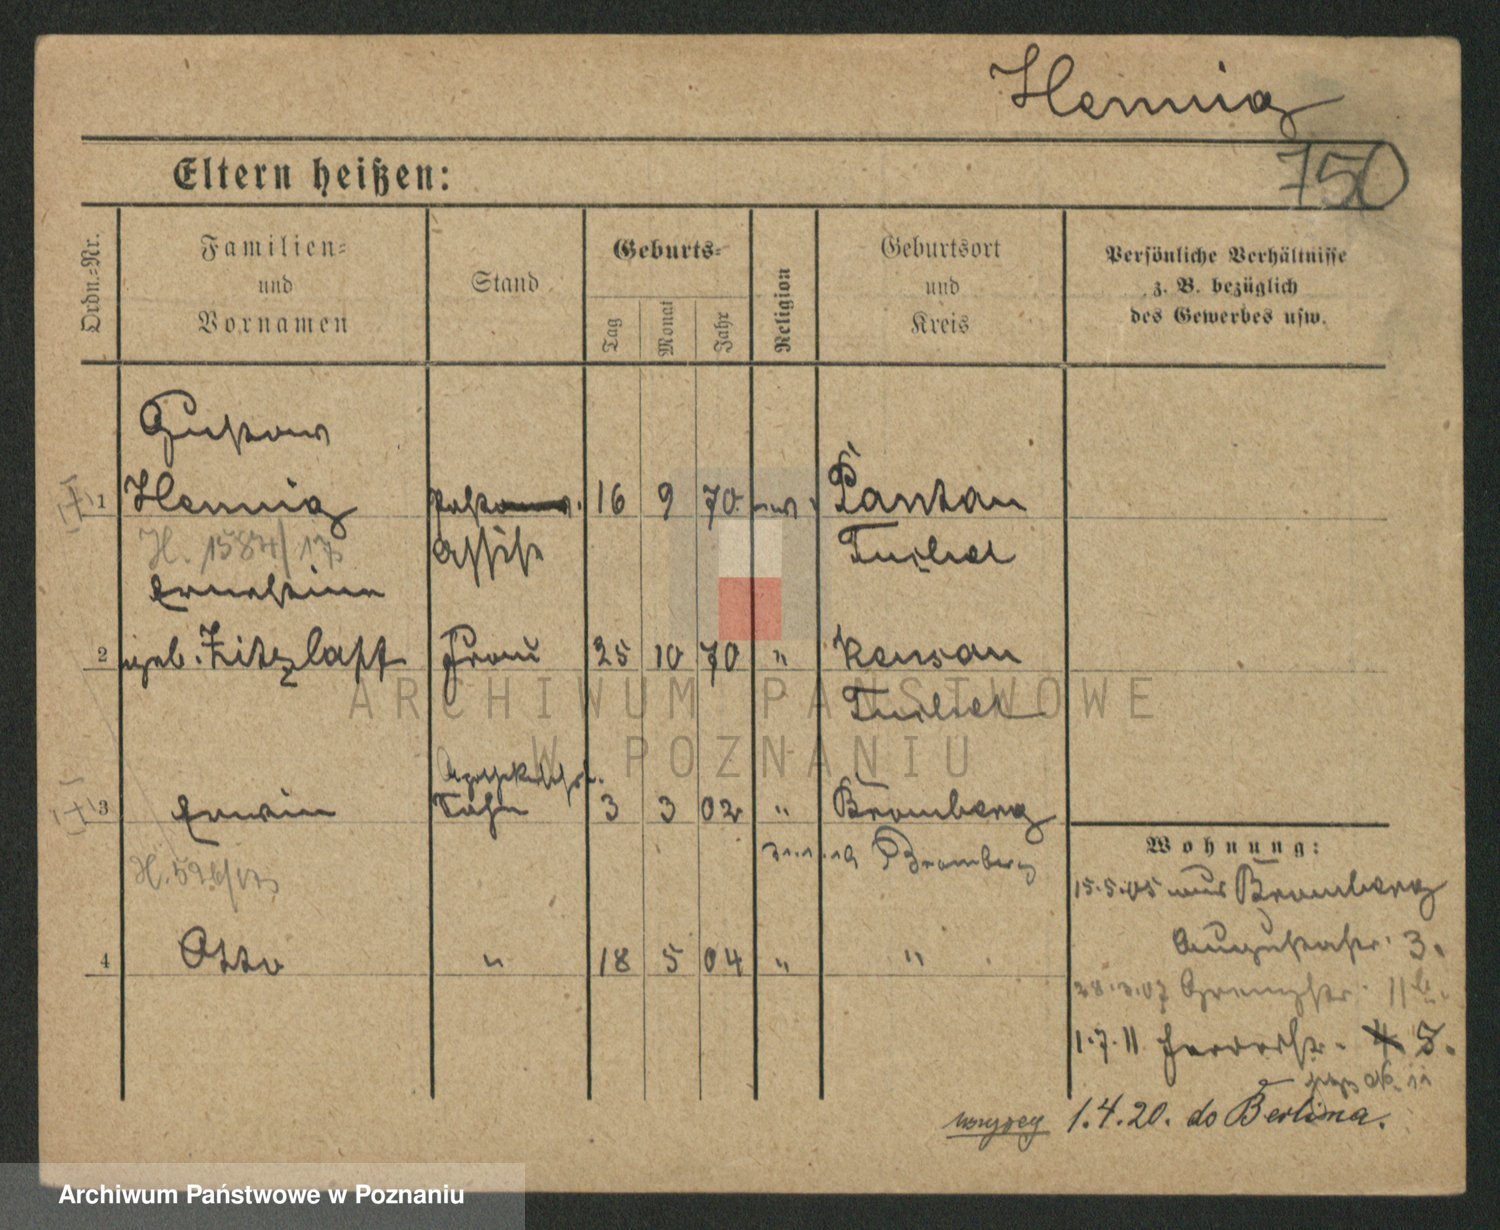 Hennig
750
Eltern heißen:
Ordn.=Nr.
Familien=
und
Vornamen
Stand
Geburts=
Tag
Monat
Jahr
Religion
Geburtsort
und
Kreis
Persönliche Verhältnisse
z. B. bezüglich
des Gewerbes usw.
Gustav
1 Hennig 16 9 70
H. 1584/17
Assist
Tuchel
Ernestine
2 geb. Fitzlaff Frau 25 10 70 " Kensau
Tuchel
3 Erwin Sohn 3 3 02 " Bromberg
Bromberg
4 Otto " 18 5 04 " "
Wohnung:
15.5.05 aus Bromberg
Augustastr. 3.
28.3.07 Grenzstr. 11
1.7.11 5.
1.4.20. do Berlina.
ARCHIWUM PAŃSTWOWE
W POZNANIU
Archiwum Państwowe w Poznaniu